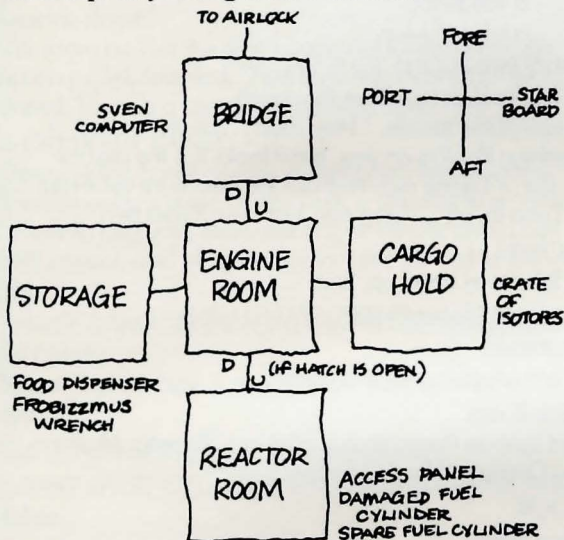 TO AIRLOCK
FORE
PORT
STAR
BOARD
AFT
SVEN
COMPUTER
BRIDGE
D
U
STORAGE
ENGINE
ROOM
CARGO
HOLD
CRATE
OF
ISOTOPES
FOOD DISPENSER
FROBIZZMUS
WRENCH
D
U
(IF HATCH IS OPEN)
REACTOR
ROOM
ACCESS PANEL
DAMAGED FUEL
CYLINDER
SPARE FUEL CYLINDER